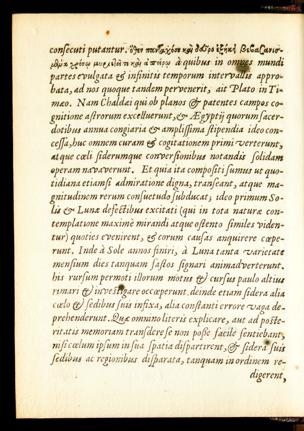 consecuti putantur.
à quibus in omnes mundi
partes evulgata & infinitis temporum intervallis appro-
bata, ad nos quoque tandem pervenerit, ait Plato in Ti-
mæo. Nam Chaldæi qui ob planos & patentes campos co-
gnitione astrorum excelluerunt, & Ægyptij quorum sacer-
dotibus annua congiaria & amplissima stipendia ideo con-
cessa, huc omnem curam & cogitationem primi verterunt,
atque cœli siderumque conversionibus notandis solidam
operam navaverunt. Et quia ita compositi sumus ut quo-
tidiana etiamsi admiratione digna, transeant, atque ma-
gnitudinem rerum consuetudo subducat, ideo primum So-
lis & Lunæ defectibus excitati (qui in tota naturæ con-
templatione maximè mirandi atque ostento similes viden-
tur) quoties evenirent, & eorum causas anquirere cœpe-
runt. Inde à Sole annos finiri, à Luna tanta varietate
mensium dies tanquam fastos signari animadverterunt.
his rursum permoti illorum motus & cursus paulo altius
rimari & investigare occœperunt. deinde etiam sidera alia
cœlo & sedibus suis infixa, alia constanti errore vaga de-
prehenderunt. Quæ omnino literis explicare, aut ad poste-
ritatis memoriam transdere se non posse facile sentiebant,
nisi cœlum ipsum in sua spatia dispartirent, & sidera suis
sedibus ac regionibus disparata, tanquam in ordinem re-
digerent,